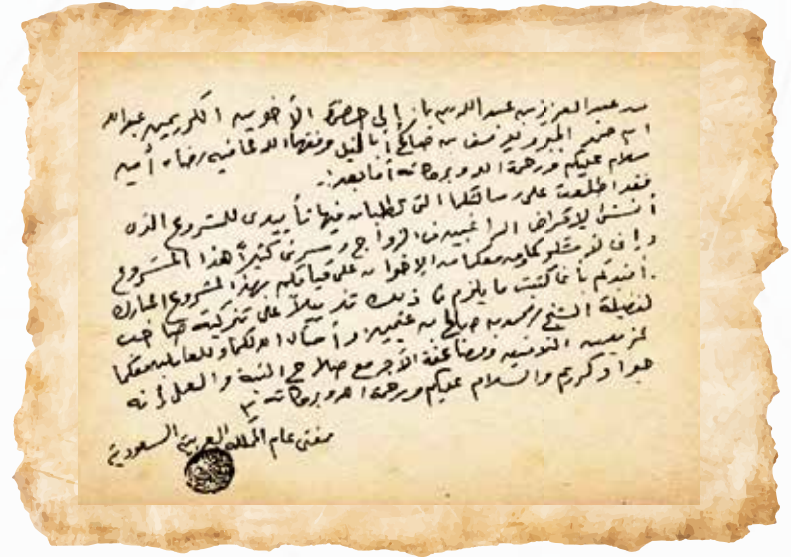 من عبد العزيز بن عبد الله بن باز إلى حضرة الأخوين الكريمين عبد الله
وفقهما الله لما فيه رضاه آمين
سلام عليكم ورحمة الله وبركاته أما بعد:.
فقد اطلعت على رسالتكما التي تطلبان فيها تأييدي للمشروع الذي
أنشئ لإقراض الراغبين في الزواج وسرني كثيراً هذا المشروع
وإني لأشكركما ومن معكما من الإخوان على قيامكم بهذا المشروع المبارك
وأفيدكم بأني كتبت ما يلزم في ذلك تذييلاً على تزكية صاحب
لفضيلة الشيخ محمد بن صالح بن عثيمين وأسأل الله لكما وللعاملين معكما
مزيد من التوفيق ومضاعفة الأجر مع صلاح النية والعمل إنه
جواد كريم والسلام عليكم ورحمة الله وبركاته
مفتي عام المملكة العربية السعودية